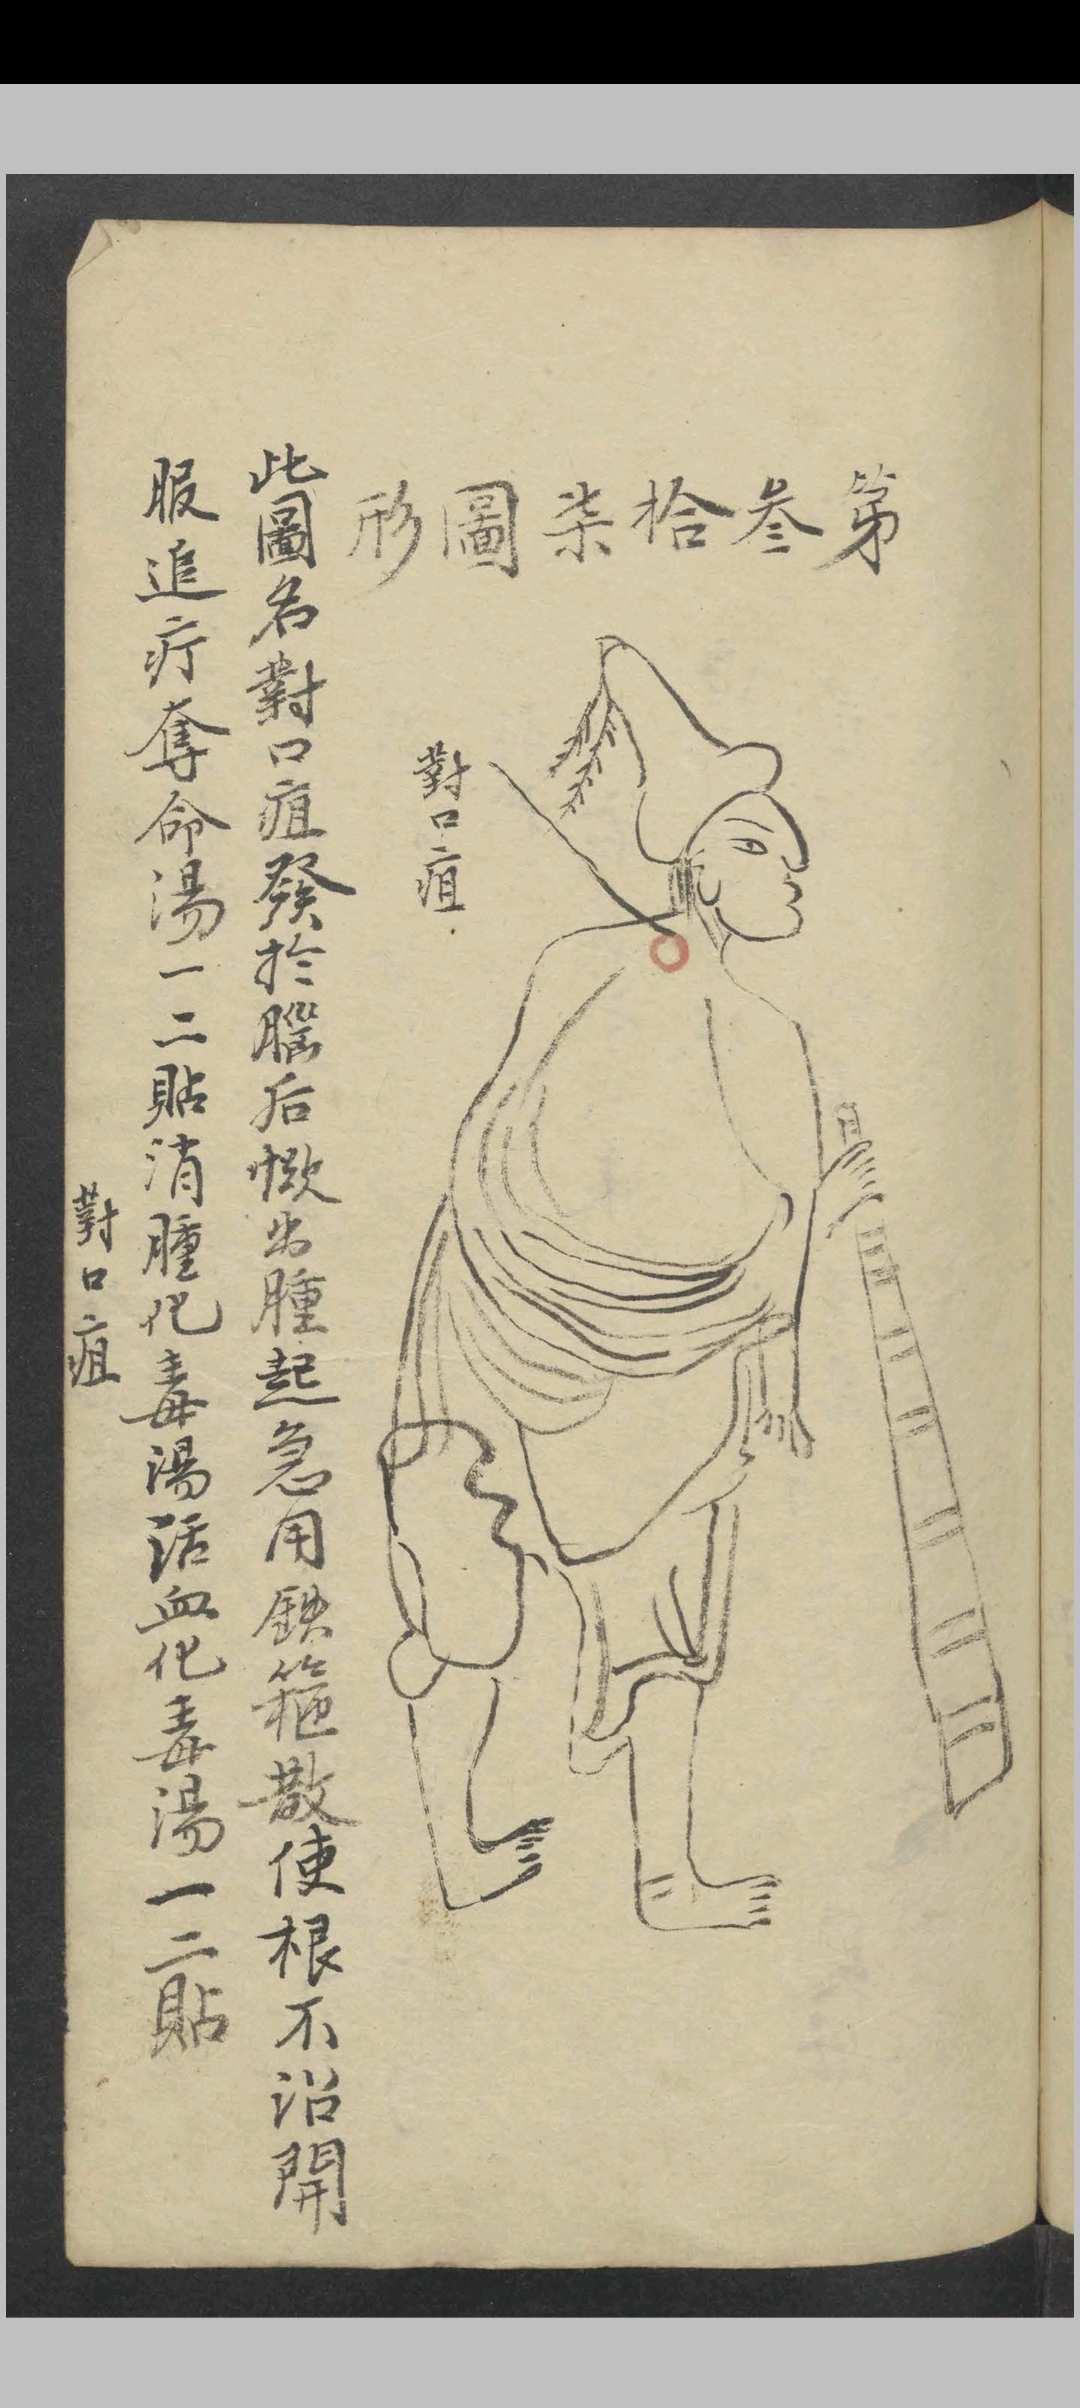 第叁拾柒圖形
對口疽
此圖名對口疽發於腦后惱出腫起急用鉄箍散使根不沿開
服追疔奪命湯一二貼消腫化毒湯活血化毒湯一二貼
對口疽